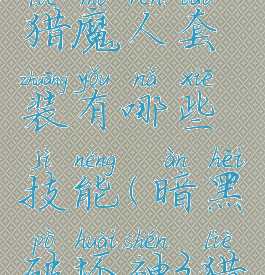 liè mó rén tào
猎魔人套
zhuāng yǒu nǎ xiē
装有哪些
jì néng àn hēi
技能(暗黑
pò huài shén liè
破坏神3猎